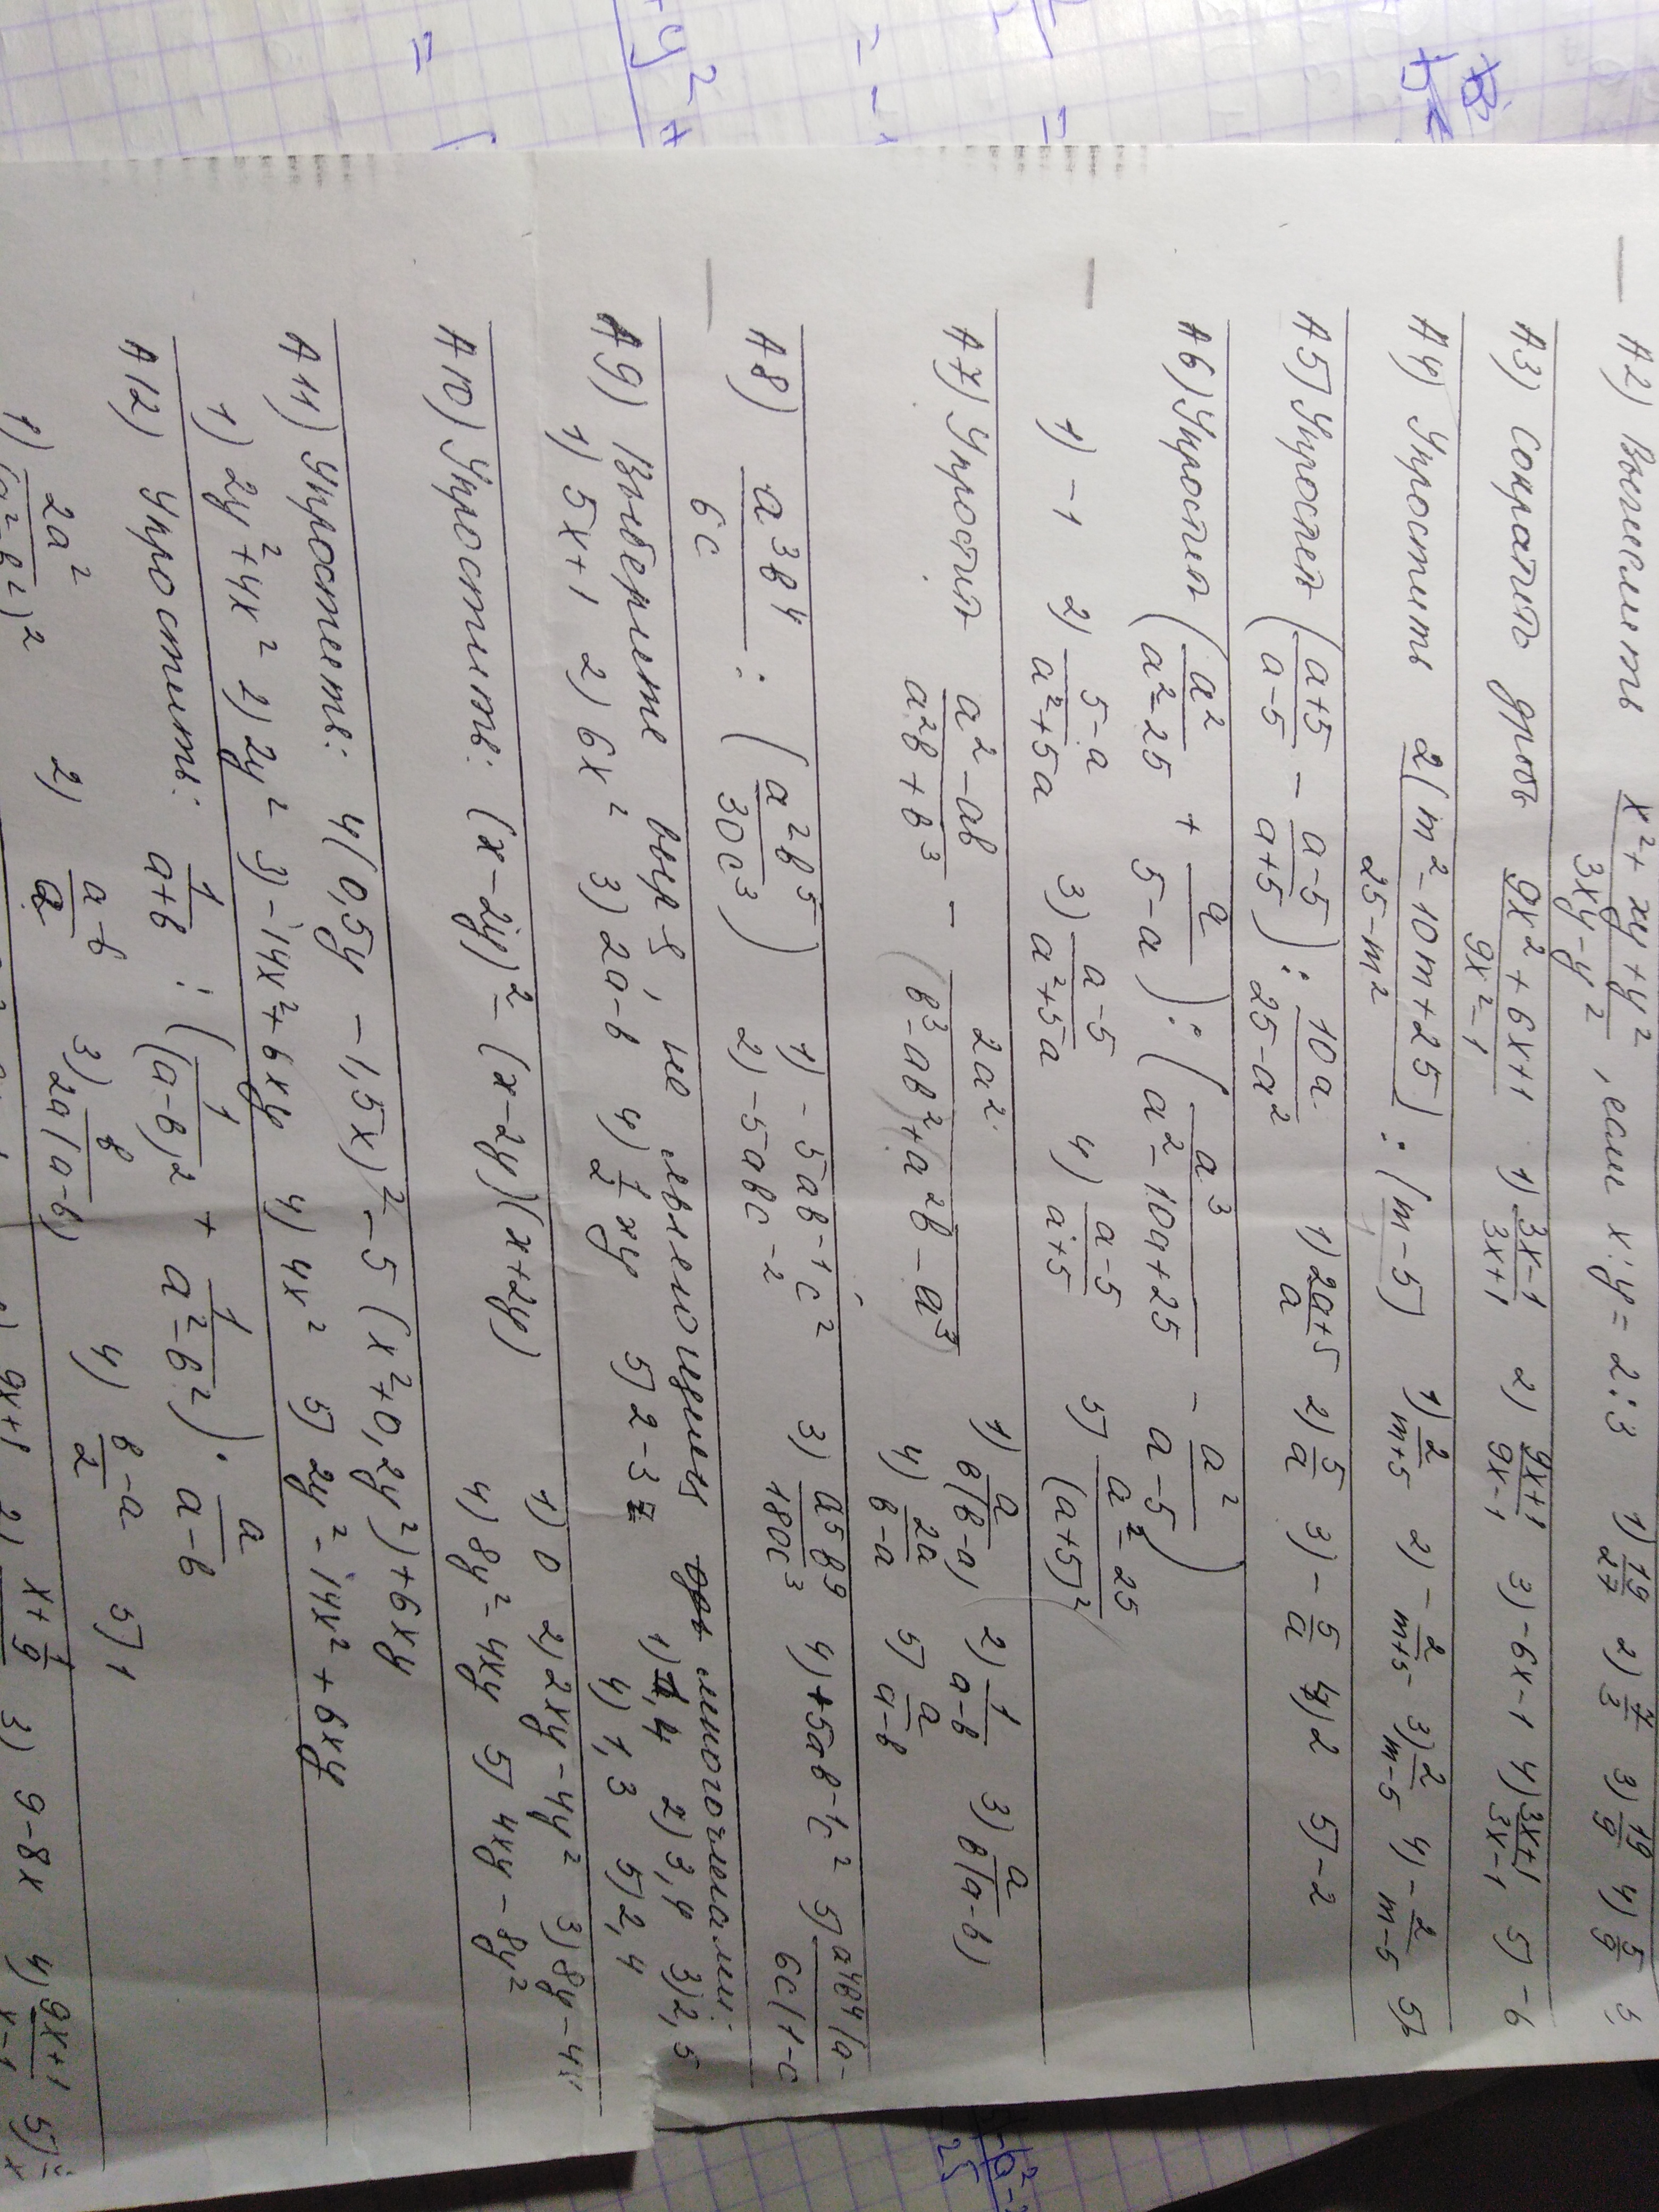 A2) Вычислить (x²+xy+y²)/(3xy-y²), если x:y=2:3 1) 19/27 2) 7/3 3) 19/9 4) 5/9 5
A3) Сократить дробь (9x²+6x+1)/(9x²-1) 1) (3x-1)/(3x+1) 2) (9x+1)/(9x-1) 3) -6x-1 4) (3x+1)/(3x-1) 5) -6
A4) Упростить 2(m²-10m+25)/(25-m²) : (m-5) 1) 2/(m+5) 2) -2/(m+5) 3) 2/(m-5) 4) -2/(m-5) 5)
A5) Упростил ((a+5)/(a-5) - (a-5)/(a+5)) : 10a/(25-a²) 1) (2a+5)/a 2) 5/a 3) -5/a 4) 2 5) -2
A6) Упростил (a²/(a²-25) + a/(5-a)) : (a³/(a²-10a+25) - a²/(a-5))
1) -1 2) (5-a)/(a²+5a) 3) (a-5)/(a²+5a) 4) (a-5)/(a+5) 5) (a²-25)/(a+5)²
A7) Упростил (a²-ab)/(a²b+b³) - (2a²/(b³-ab²+a²b-a³)) 1) a/(b(b-a)) 2) 1/(a-b) 3) a/(b(a-b))
4) 2a/(b-a) 5) a/(a-b)
A8) a³b⁴/6c : (a²b⁵/30c³) 1) -5ab⁻¹c² 3) a⁵b⁹/180c³ 4) +5ab⁻¹c² 5) a⁴b⁴(a-
2) -5abc⁻² 6c(1-c
A9) Выберите выр-я, не являющиеся многочленами:
1) 5x+1 2) 6x² 3) 2a-b 4) 1/2 xy 5) 2-3 1) 1,4 2) 3,4 3) 2,5
4) 1,3 5) 2,4
A10) Упростить: (x-2y)²-(x-2y)(x+2y) 1) 0 2) 2xy-4y² 3) 8y-4x
4) 8y²-4xy 5) 4xy-8y²
A11) Упростить: 4(0,5y-1,5x)²-5(x²+0,2y²)+6xy
1) 2y²+4x² 2) 2y² 3) -14x²+6xy 4) 4x² 5) 2y²-14x²+6xy
A12) Упростить: 1/(a+b) : (1/(a-b)² + 1/(a²-b²)) · a/(a-b)
1) 2a²/(a²-b²)² 2) (a-b)/a 3) b/(2a(a-b)) 4) b/2-a 5) 1
9x+1 2) x+1/9 3) 9-8x 4) (9x+1)/(x-1) 5)